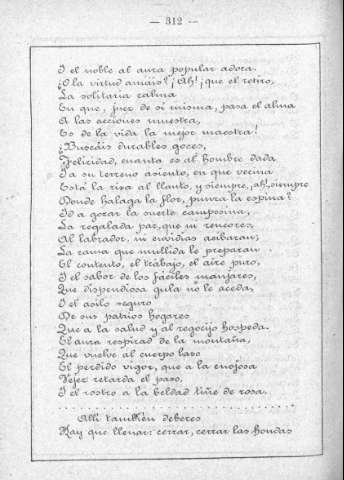 — 312 —
I el noble al aura popular adora.
¿O la virtud amáis? ¡Ah! ¡que el retiro,
La solitaria calma
En que, juez de sí misma, pasa el alma
A las acciones muestra,
Es de la vida la mejor maestra!
¿Buscáis durables goces,
Felicidad, cuanta es al hombre dada
I a su terreno asiento, en que vecina
Está la risa al llanto, y siempre, ¡ah!, siempre
Donde halaga la flor, punza la espina?
Id a gozar la suerte campesina;
La regalada paz, que ni rencores,
Al labrador, ni envidias acibaran;
La cama que mullida le preparan
El contento, el trabajo, el aire puro,
I el sabor de los fáciles manjares,
Que dispendiosa gula no le aceda,
I el asilo seguro
De sus patrios hogares
Que a la salud y al regocijo hospeda.
El aura respirad de la montaña,
Que vuelve al cuerpo laso
El perdido vigor, que a la enojosa
Vejez retarda el paso,
I el rostro a la beldad tiñe de rosa.
. . . . . . . . . . . . . . . . . . . . . . . . . . .
Allí también deberes
Hay que llenar: cerrar, cerrar las hondas